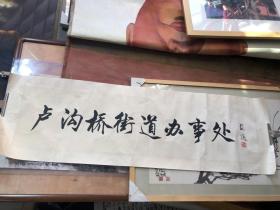 卢沟桥街道办事处